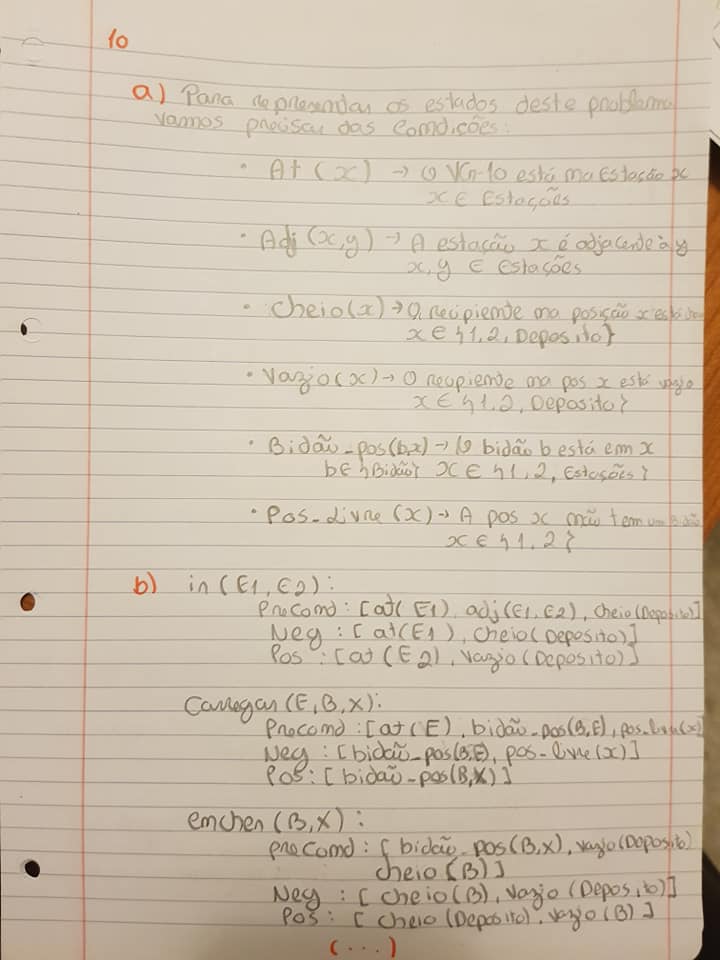 10
a) Para representar os estados deste problema
vamos precisar das condições:
• At (x) → O VGN-10 está na Estação x
x ∈ Estações
• Adj (x,y) → A estação x é adjacente à y
x, y ∈ Estações
• Cheio(x) → O recipiente na posição x está
x ∈ {1, 2, Deposito}
• Vazio(x) → O recipiente na pos x está vazio
x ∈ {1, 2, Deposito}
• Bidão_pos(b,x) → O bidão b está em x
b ∈ {Bidão} x ∈ {1, 2, Estações}
• Pos_Livre (x) → A pos x não tem um Bidão
x ∈ {1, 2}
b) in (E1, E2):
PreCond : [at( E1), adj(E1, E2), cheio(Deposito)]
Neg : [ at(E1), cheio(Deposito)]
Pos : [at (E2), vazio(Deposito)]
Carregar (E, B, X):
PreCond : [at(E), bidão_pos(B,E), pos_livre(x)]
Neg : [bidão_pos(B,E), pos_livre(x)]
Pos : [ bidão_pos(B,X)]
encher (B, X) :
preCond : [ bidão_pos(B,X), vazio(Deposito)
cheio (B)]
Neg : [ cheio(B), vazio (Deposito)]
Pos : [ cheio (Deposito), vazio (B) ]
(...)